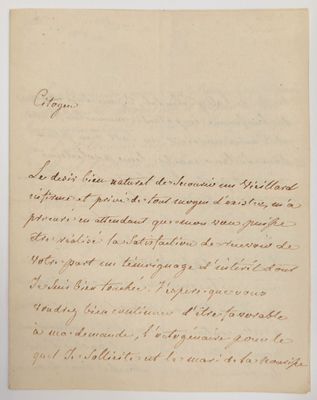 Citoyen
Le desir bien naturel de secourir un Vieillard
infirme et privé de tout moyen d'exister, m'a
procuré en attendant que mon vœu puisse
être réalisé la Satisfaction de recevoir de
votre part un témoignage d'intérêt dont
Je suis bien touchée. J'espere que vous
voudrez bien continuer d'être favorable
à ma demande, l'octogénaire pour le
quel Je Sollicite est le mari de la nourrisse